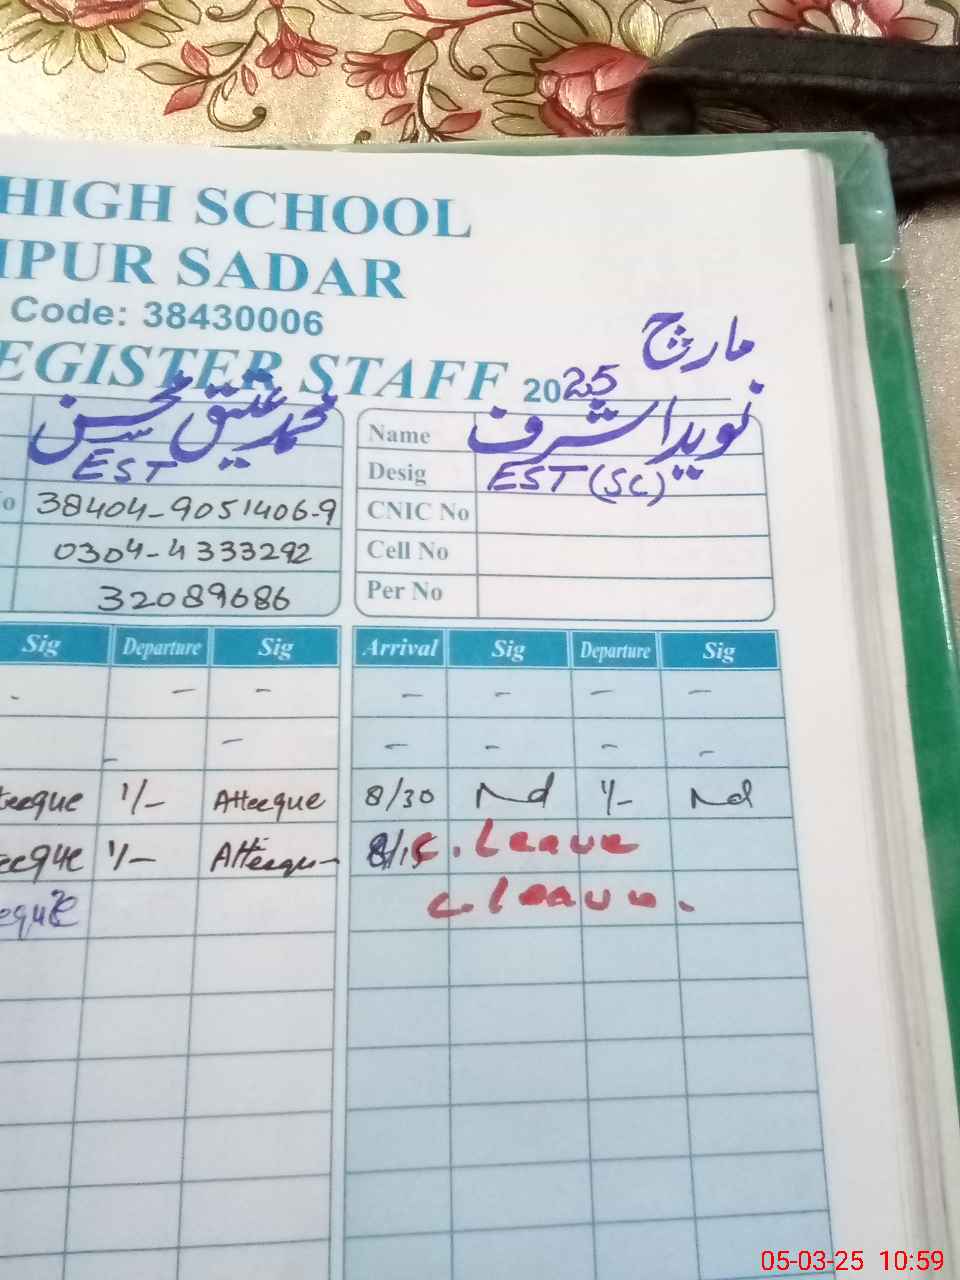 HIGH SCHOOL
IPUR SADAR
Code: 38430006
EGISTER STAFF 2025 مارچ
محمد عتیق محسن
EST
Name نوید اشرف
Desig EST (SC)
No 38404-9051406-9
CNIC No
0304-4333292
Cell No
32089686
Per No
Sig Departure Sig
Arrival Sig Departure Sig
- - -
- - - -
- -
- - - -
teeque 1/- Atteeque
8/30 Nd 1/- Nd
eeque 1/- Atteeque
8/15 C. Leave
eque
C. Leave.
05-03-25 10:59